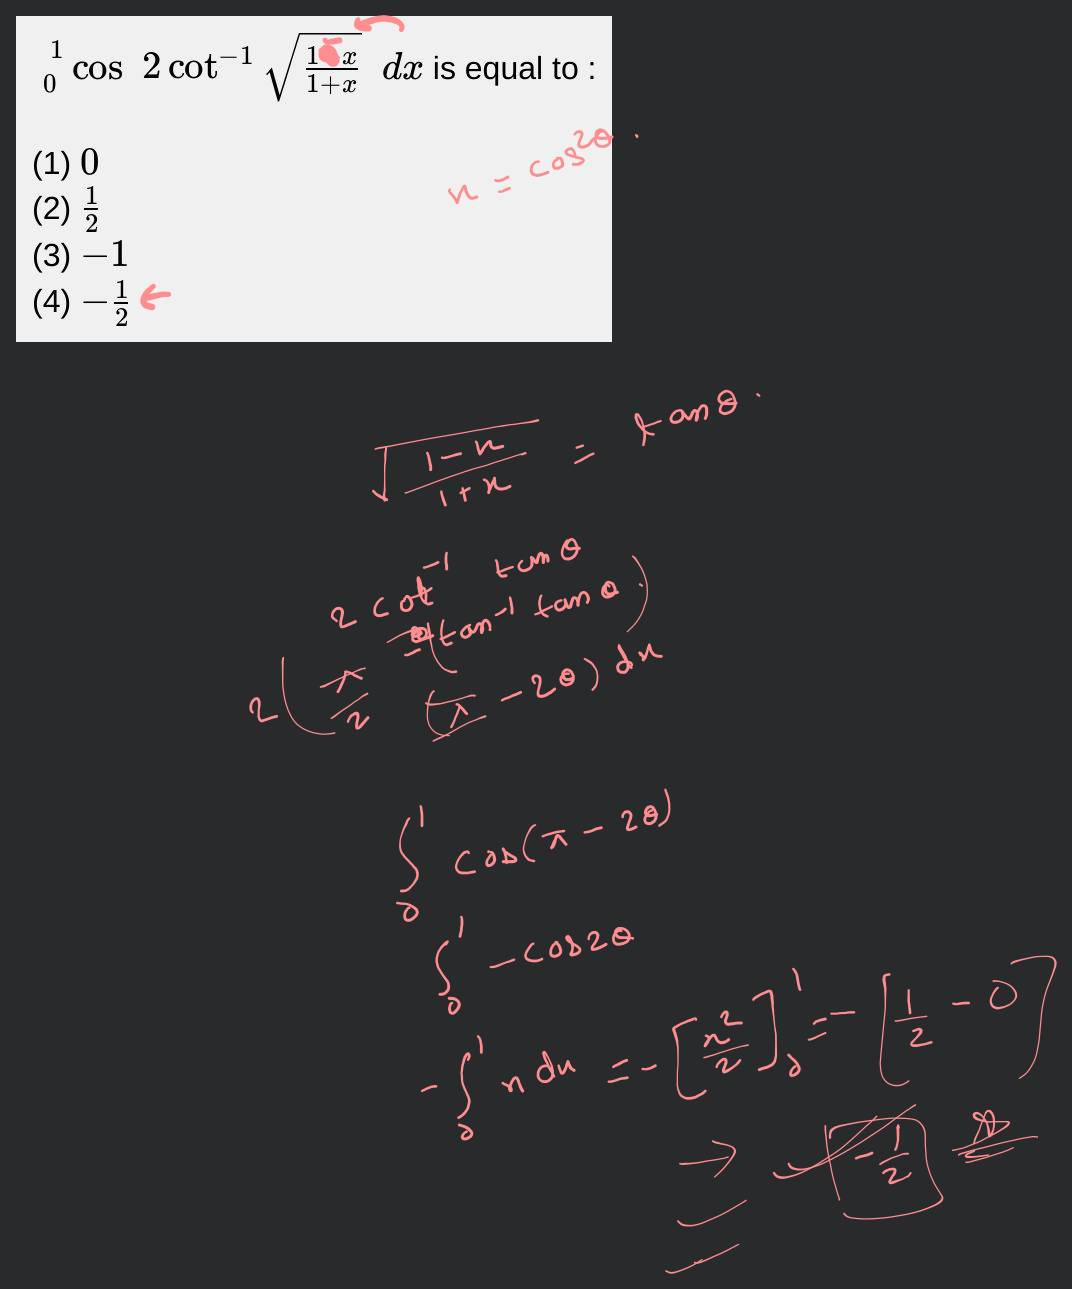 1
0 cos 2 cot⁻¹ √((1-x)/(1+x)) dx is equal to :
(1) 0
(2) 1/2
(3) −1
(4) −1/2 ←
x = cos2θ .
√((1-x)/(1+x)) = tanθ .
2 cot⁻¹ tanθ
= (tan⁻¹ tanθ .)
2( π/2 (π - 2θ) dx
∫₀¹ cos(π - 2θ)
∫₀¹ -cos2θ
-∫₀¹ x dx = -[x²/2]₀¹ = -[1/2 - 0]
→ -1/2